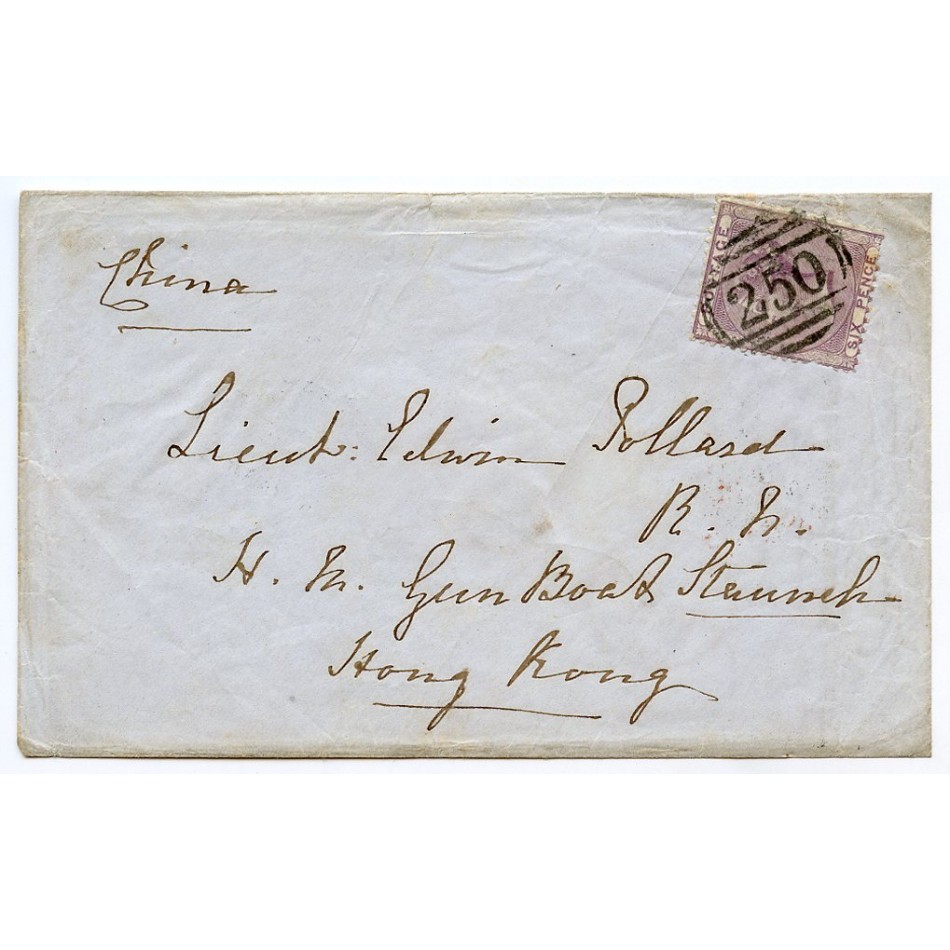 China
POSTAGE
250
SIX PENCE
Lieut: Edwin Pollard
R. N.
H. M. Gun Boat Staunch
Hong Kong